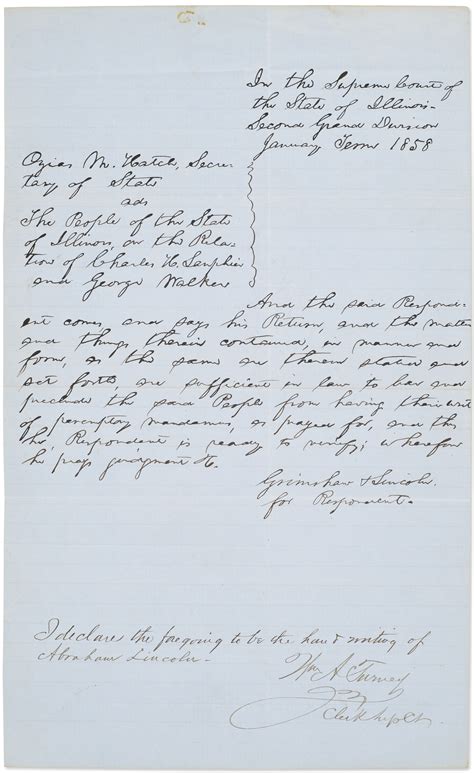 In the Supreme Court of
the State of Illinois-
Second Grand Division
January Term 1858
Ozias M. Hatch, Secre-
tary of State
ads
The People of the State
of Illinois, on the Rela-
tion of Charles H. Lanphier
and George Walker
And the said Respond-
ent comes and says his Return, and the matters
and things therein contained, in manner and
form, as the same are therein stated and
set forth, are sufficient in law to bar and
preclude the said People from having their writ
of peremptory mandamus, as prayed for, and this
he, Respondent is ready to verify; wherefore
he prays judgment &c.
Grimshaw & Lincoln.
for Respondent-
I declare the foregoing to be the hand writing of
Abraham Lincoln-
Wm A Turney
Clerk Sup Ct